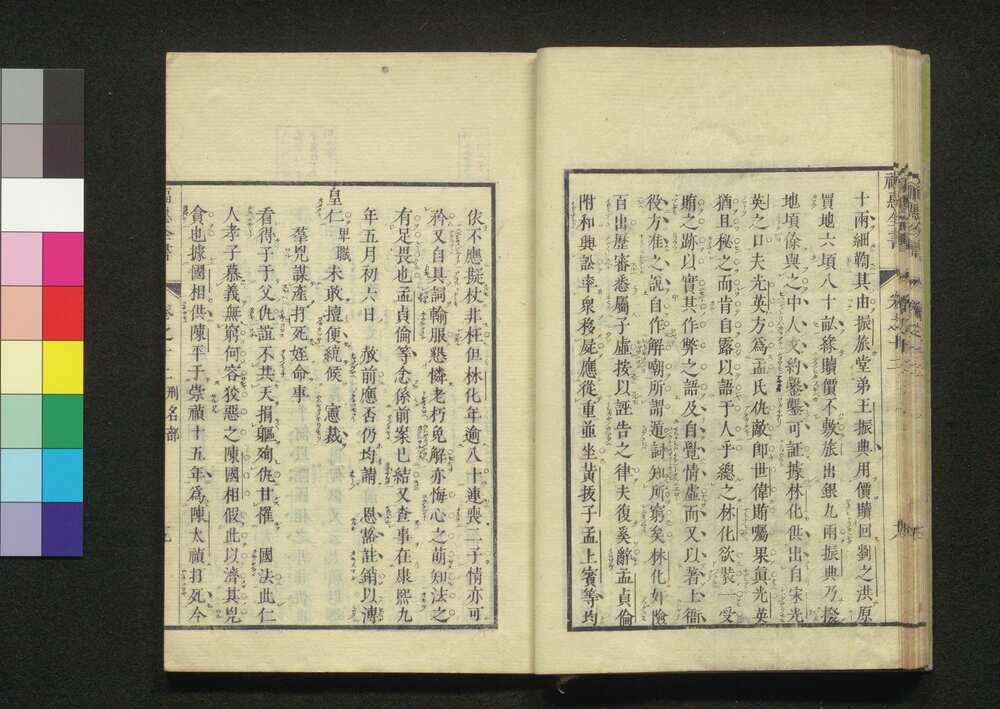 十兩細鞫其由振旅堂弟王振典用價贖回劉之洪原
買地六頃八十畝緣贖價不敷旅出銀九兩振典乃撥
地頃餘與之中人文約鑿鑿可証據林化供出自宋光
英之口夫光英方為孟氏仇敵即世偉賄囑果真光英
猶且秘之而肯自露以語于人乎總之林化欲裝一受
賄之跡以實其作弊之語及自覺情虛而又以著上衙
役方准之說自作解嘲所謂遁詞知所窮矣林化奸險
百出歷審悉屬子虛按以誣告之律夫復奚辭孟貞倫
附和興訟率眾移屍應從重並坐黃拔子孟上賓等均
依不應擬杖非枉但林化年逾八十連喪二子情亦可
矜又自具詞輸服懇憐老朽免解亦悔心之萌知法之
有足畏也孟貞倫等念係前案已結又查事在康熙九
年五月初六日 赦前應否仍均請 恩鑒註銷以溥
皇仁卑職 未敢擅便統候 憲裁
羣兇謀產打死姪命事
看得子于父仇誼不共天捐軀殉仇甘罹 國法此仁
人孝子慕義無窮何容狡惡之陳國相假此以濟其兇
貪也據國相供陳平于崇禎十五年為陳太禎打死今
福惠全書 卷之十二 刑名部 九